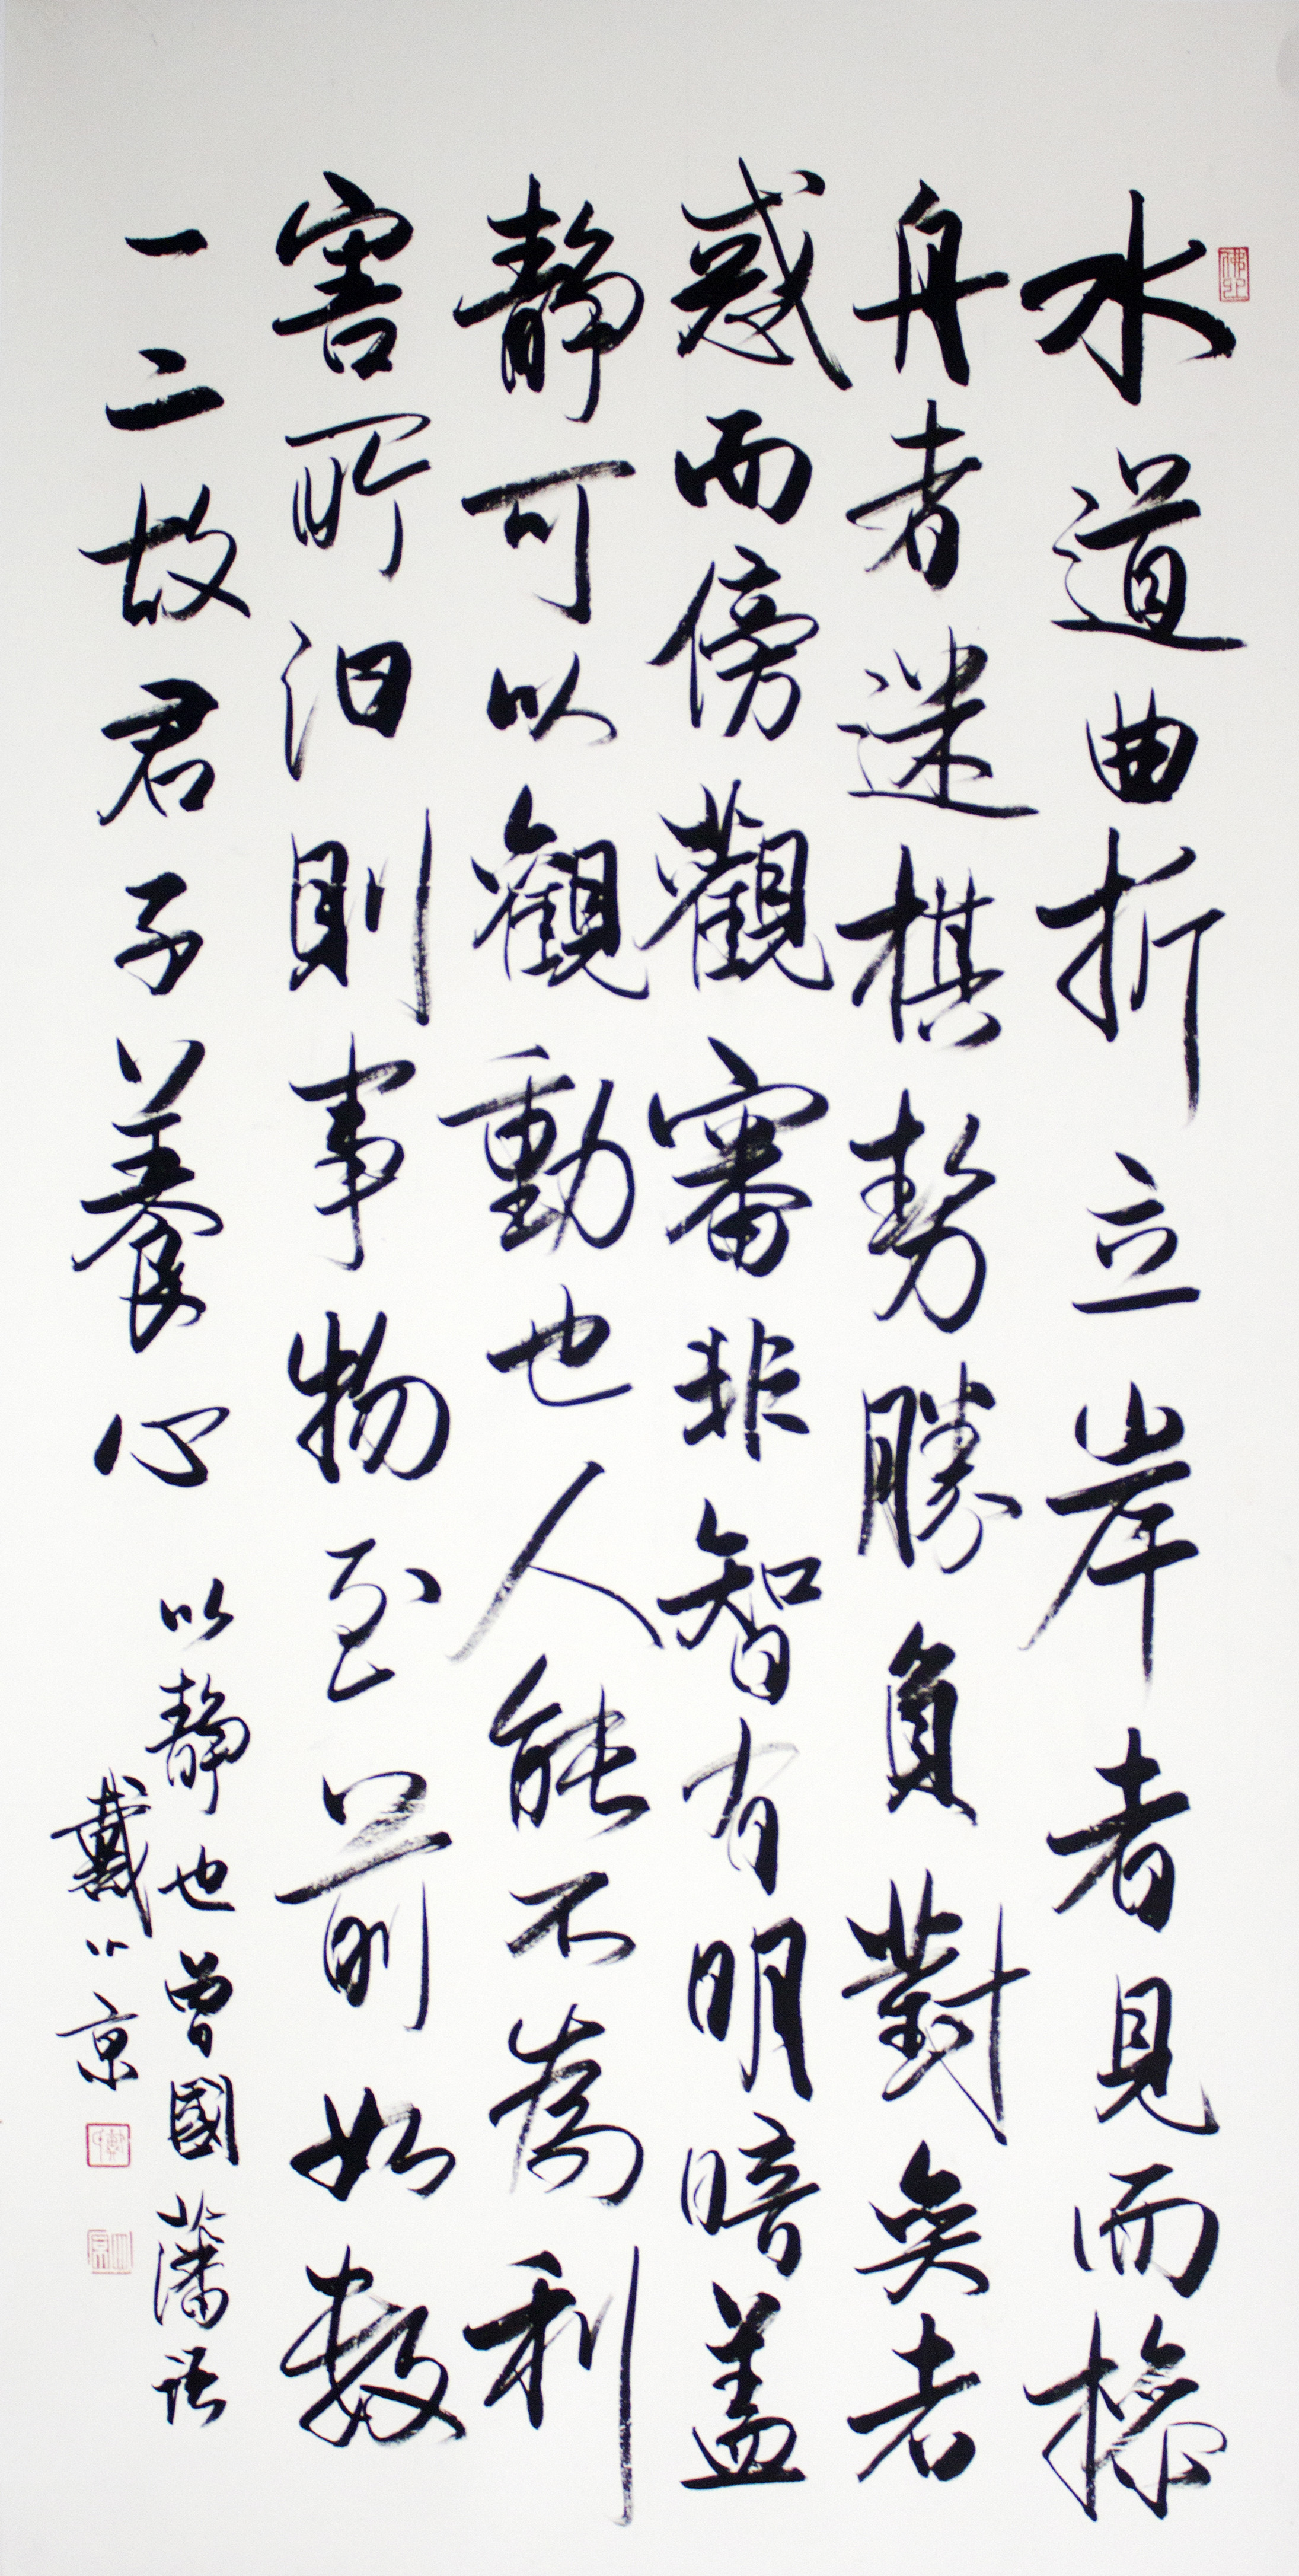 水道曲折立岸者見而操
舟者迷棋勢勝負對奕者
惑而傍觀審非智有明暗盖
靜可以觀動也人能不為利
害所汩則事物至前如數
一二故君子養心
以靜也曾國藩語
戴京